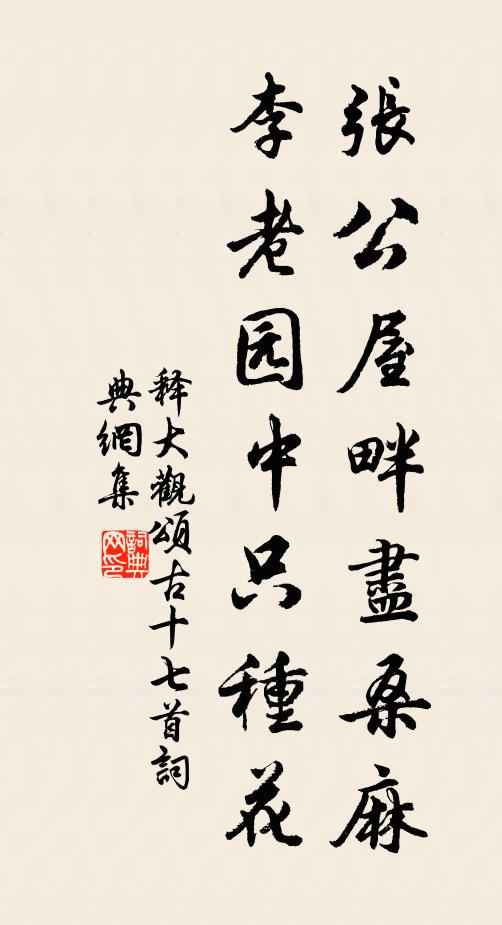 張公屋畔盡桑麻
李老园中只種花
释大觀頌古十七首詞
典網集
詞典
网印